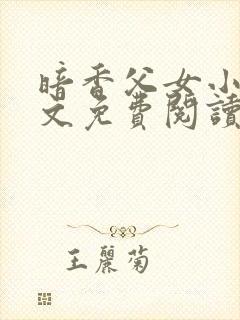 暗香父女小
文免費閱讀
王麗菊